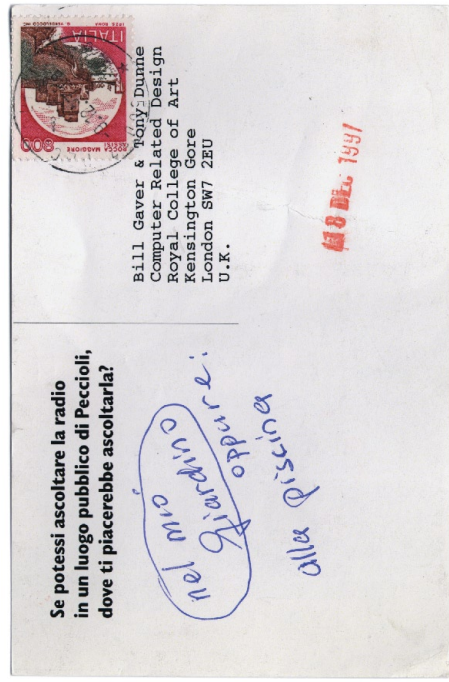 Se potessi ascoltare la radio
in un luogo pubblico di Peccioli,
dove ti piacerebbe ascoltarla?
nel mio
giardino
oppure:
alla piscina
ITALIA
800
ROCCA MAGGIORE
ASSISI
Bill Gaver & Tony Dunne
Computer Related Design
Royal College of Art
Kensington Gore
London SW7 2EU
U.K.
18 DEC 1997